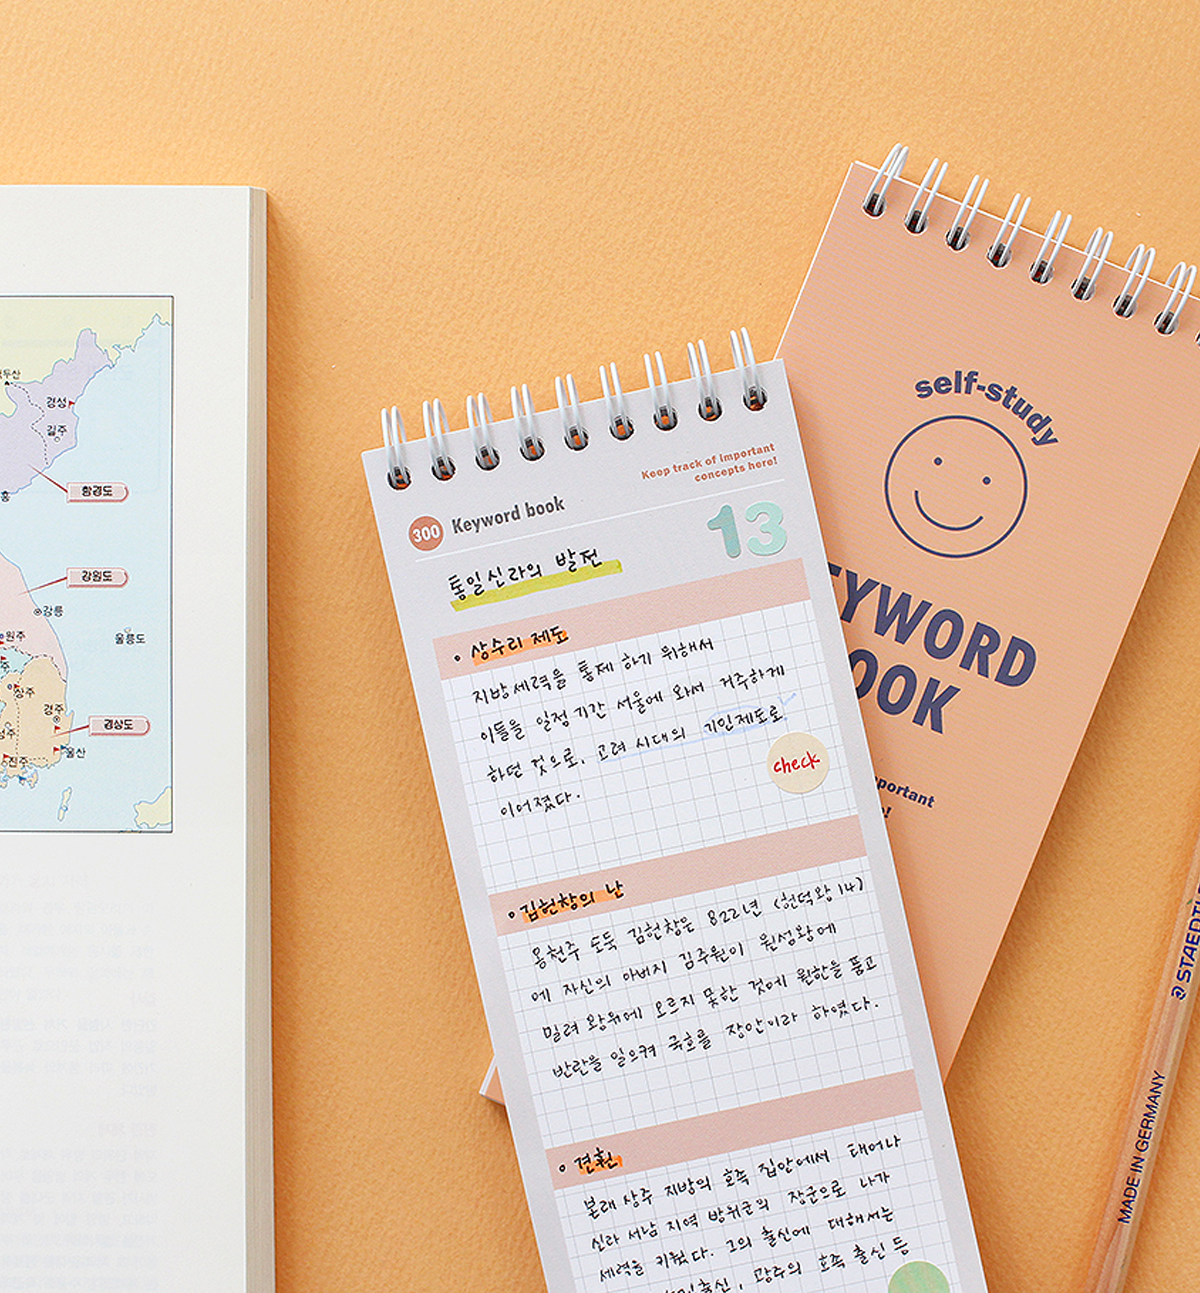 두산
경성
길주
흥
함경도
강원도
강릉
원주
울릉도
상주
경주
경상도
성주
울산
진주
Keep track of important
concepts here!
300 Keyword book
13
통일신라의 발전
• 상수리 제도
지방세력을 통제 하기 위해서
이들을 일정기간 서울에 와서 거주하게
하던 것으로, 고려 시대의 기인제도로
이어졌다.
check
• 김헌창의 난
웅천주 도독 김헌창은 822년 (헌덕왕 14)
에 자신의 아버지 김주원이 원성왕에
밀려 왕위에 오르지 못한 것에 원한을 품고
반란을 일으켜 국호를 장안이라 하였다.
• 견훤
본래 상주 지방의 호족 집안에서 태어나
신라 서남 지역 방위군의 장군으로 나가
세력을 키웠다. 그의 출신에 대해서는
출신, 광주의 호족 출신 등
self-study
YWORD
OOK
portant
!
STAEDTL
MADE IN GERMANY